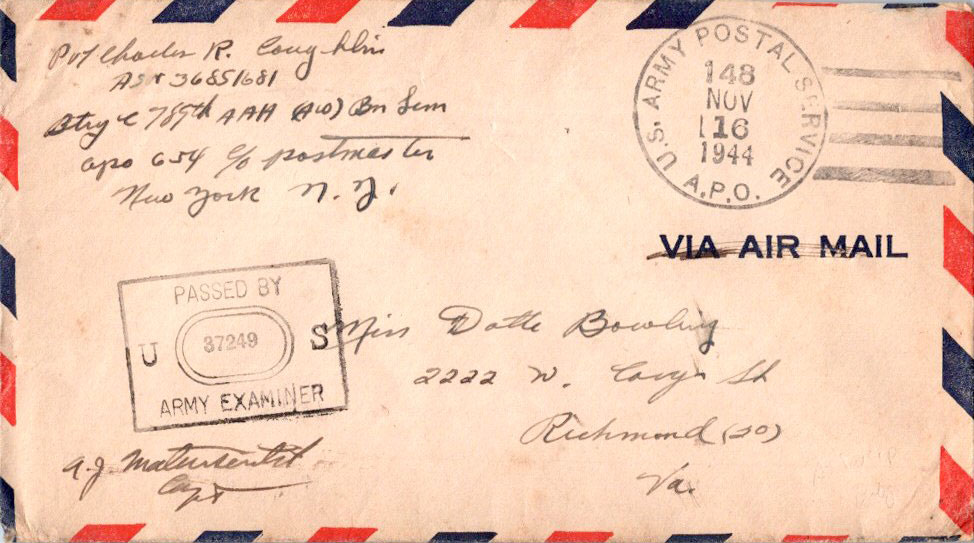 Pvt Charles R. Coughlin
ASN 36851681
Btry C 789th AAA (AW) Bn Sem
APO 654 c/o Postmaster
New York N. Y.
U.S. ARMY POSTAL SERVICE
148
NOV
16
1944
A.P.O.
VIA AIR MAIL
PASSED BY
U 37249 S
ARMY EXAMINER
Miss Dotte Bowling
2222 W. St
Richmond (20)
Va.
A. J.
Capt